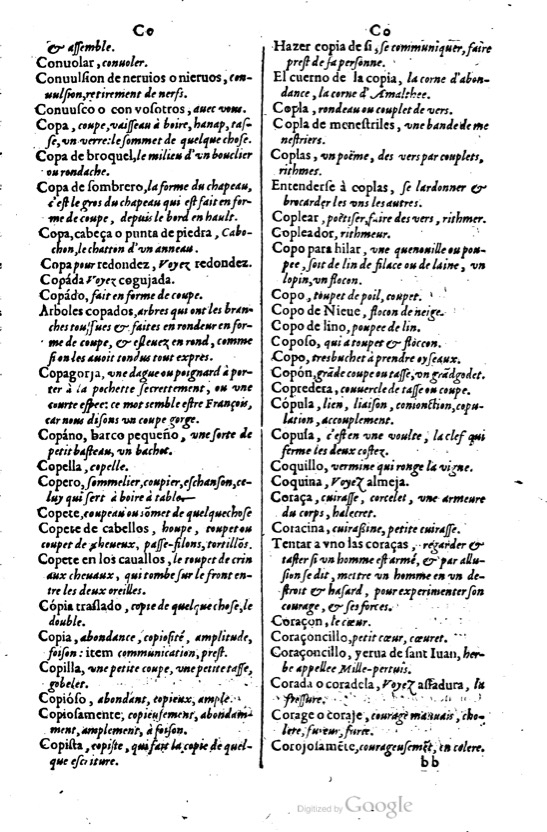 Co
& assemble.
Conuolar, conuoler.
Conuulsion de neruios o nieruos, con-
uulsion, retirement de nerfs.
Conuusco o con vosotros, auec vous.
Copa, coupe, vaisseau à boire, hanap, tas-
se, vn verre: le sommet de quelque chose.
Copa de broquel, le milieu d'vn bouclier
ou rondache.
Copa de sombrero, la forme du chapeau,
c'est le gros du chapeau qui est fait en for-
me de coupe, depuis le bord en hault.
Copa, cabeça o punta de piedra, Cabo-
chon, le chatton d'vn anneau.
Copa pour redondez, Voyez redondez.
Copáda Voyez cogujada.
Copádo, fait en forme de coupe.
Arboles copados, arbres qui ont les bran-
ches touffues & faites en rondeur en for-
me de coupe, & esleuez en rond, comme
si on les auoit tondus tout expres.
Copagorja, vne dague ou poignard à por-
ter à la pochette secrettement, ou vne
courte espee: ce mot semble estre François,
car nous disons vn coupe gorge.
Copáno, barco pequeño, vne sorte de
petit basteau, vn bachot.
Copella, copelle.
Copero, sommelier, coupier, eschanson, ce-
luy qui sert à boire à table.
Copete, coupeau ou sõmet de quelque chose
Copete de cabellos, houpe, toupet ou
coupet de cheueux, passe-filons, tortillõs.
Copete en los cauallos, le toupet de crin
aux cheuaux, qui tombe sur le front en-
tre les deux oreilles.
Cópia traslado, copie de quelque chose, le
double.
Copia, abondance, copiosité, amplitude,
foison: item communication, prest.
Copilla, vne petite coupe, vne petite tasse,
gobelet.
Copióso, abondant, copieux, ample.
Copiosamente, copieusement, abondam-
ment, amplement, à foison.
Copista, copiste, qui fait la copie de quel-
que escriture.
Co
Hazer copia de si, se communiquer, faire
prest de sa personne.
El cuerno de la copia, la corne d'abon-
dance, la corne d'Amalthee.
Copla, rondeau ou couplet de vers.
Copla de menestriles, vne bande de me
nestriers.
Coplas, vn poëme, des vers par couplets,
rithmes.
Entenderse à coplas, se lardonner &
brocarder les vns les autres.
Coplear, poëtiser, faire des vers, rithmer.
Copleador, rithmeur.
Copo para hilar, vne quenouille ou pou-
pee, soit de lin de filace ou de laine, vn
lopin, vn flocon.
Copo, toupet de poil, coupet.
Copo de Nieue, flocon de neige.
Copo de lino, poupee de lin.
Coposo, qui a toupet & floccon.
Copo, tresbuchet à prendre oyseaux.
Copón, grãde coupe ou tasse, vn grãd godet.
Copredera, couuercle de tasse ou coupe.
Cópula, lien, liaison, conionction, copu-
lation, accouplement.
Copula, c'est en vne voulte, la clef qui
ferme les deux costez.
Coquillo, vermine qui ronge la vigne.
Coquina, Voyez almeja.
Coraça, cuirasse, corcelet, vne armeure
du corps, halecret.
Coracina, cuirassine, petite cuirasse.
Tentar a vno las coraças, regarder &
taster si vn homme est armé, & par allu-
sion se dit, mettre vn homme en vn de-
stroit & hasard, pour experimenter son
courage, & ses forces.
Coraçon, le cœur.
Coraçoncillo, petit cœur, cœuret.
Coraçoncillo, yerua de sant Iuan, her-
be appellee Mille-pertuis.
Corada o coradela, Voyez assadura, la
fressure.
Corage o coraje, courage mauuais, cho-
lere, fureur, furie.
Corojosamẽte, courageusemẽt, en colere.
bb
Digitized by Google